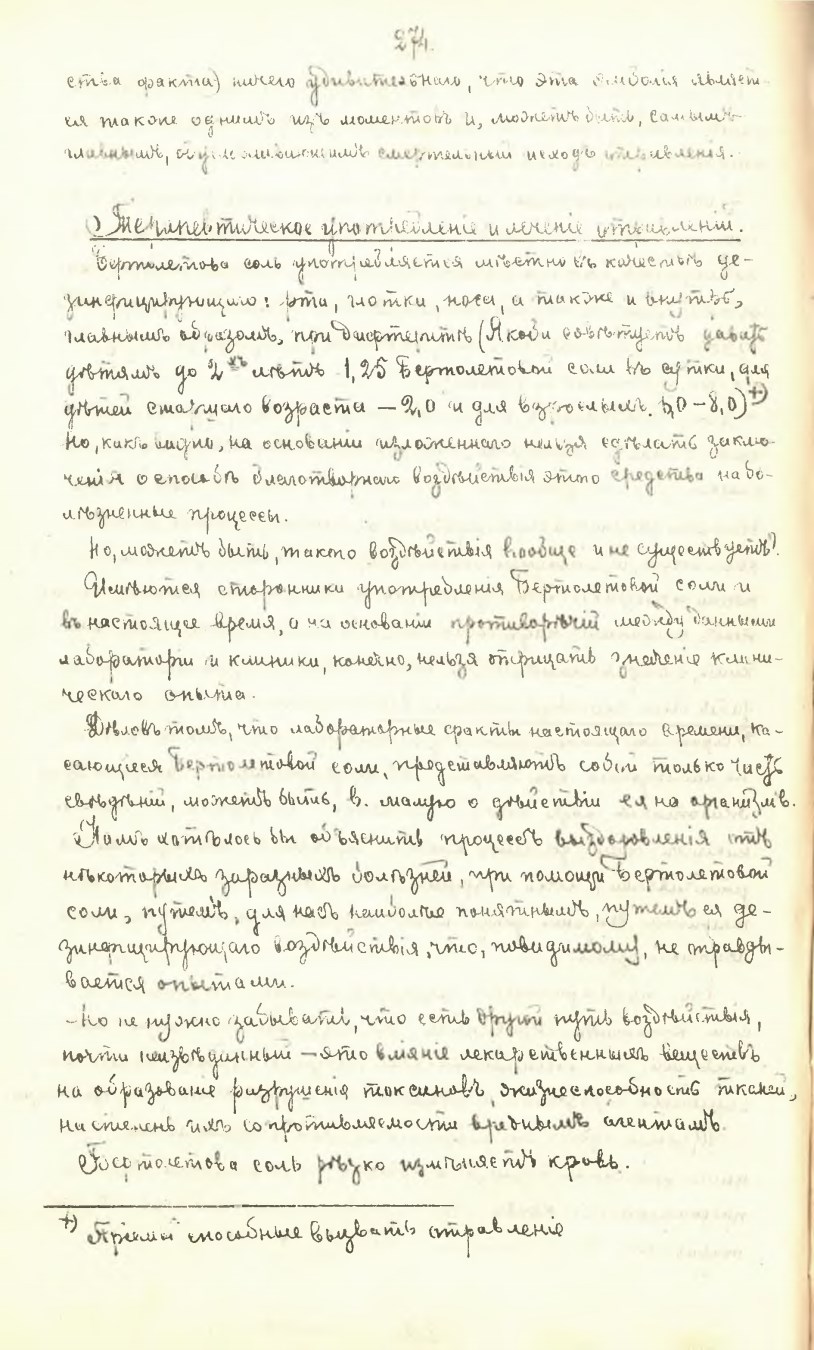 274.
ства факта) ничего удивительнаго, что эта эмболія являет-
ся также однимъ изъ моментовъ и, можетъ быть, самымъ
главнымъ, обусловливающимъ смертельный исходъ отравленія.
Терапевтическое употребленіе и леченіе отравленій.
Бертолетова соль употребляется мѣстно въ качествѣ де-
зинфицирующаго: рта, глотки, носа, а также и внутрь,
главнымъ образомъ, при дифтеритѣ (Якоби совѣтуетъ давать
дѣтямъ до 2хъ лѣтъ 1,25 Бертолетовой соли въ сутки, для
дѣтей старшаго возраста — 2,0 и для взрослымъ, 5,0 – 8,0) +)
Но, какъ видно, на основаніи изложеннаго нельзя сдѣлать заклю-
ченія о способѣ благотворнаго воздѣйствія этого средства на бо-
лѣзненные процессы.
Но, можетъ быть, такого воздѣйствія вообще и не существуетъ?
Имѣются сторонники употребленія Бертолетовой соли и
въ настоящее время, а на основаніи противорѣчій между данными
лабораторіи и клиники, конечно, нельзя отрицать значеніе клини-
ческаго опыта.
Дѣло въ томъ, что лабораторные факты настоящаго времени, ка-
сающіеся Бертолетовой соли, представляютъ собой только часть
свѣдѣній, можетъ быть, в. малую о дѣйствіи ея на организмъ.
Намъ хотѣлось бы объяснить процессъ выздоровленія отъ
нѣкоторыхъ заразныхъ болѣзней, при помощи Бертолетовой
соли, путемъ, для насъ наиболѣе понятнымъ, путемъ ея де-
зинфицирующаго воздѣйствія, что, повидимому, не оправды-
вается опытами.
Но не нужно забывать, что есть другой путь воздѣйствія,
почти неизвѣданный — это вліяніе лекарственныхъ веществъ
на образованіе разрушенія токсиновъ, жизнеспособность тканей,
на степень ихъ сопротивляемости вреднымъ агентамъ.
Бертолетова соль рѣзко измѣняетъ кровь.
+) Пріемы способные вызвать отравленіе